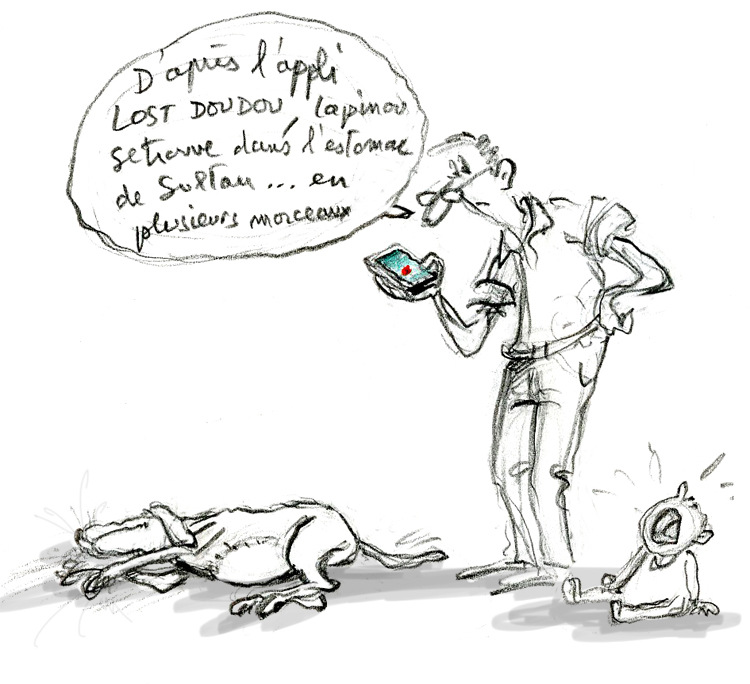 D'après l'appli
LOST DOUDOU, Lapinou
se trouve dans l'estomac
de Sultan ... en
plusieurs morceaux